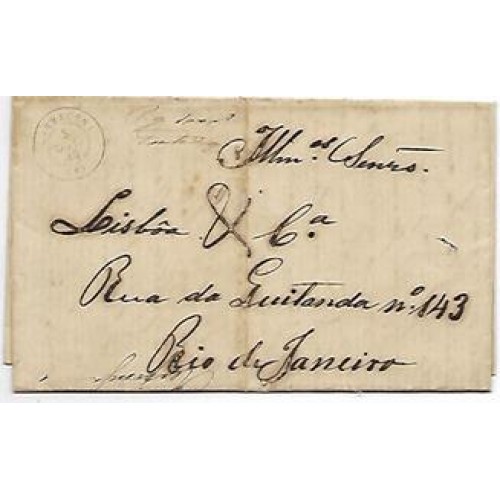 Illm.os Senrs.
Lisbôa & C.a
Rua da Quitanda nº 143
Rio de Janeiro